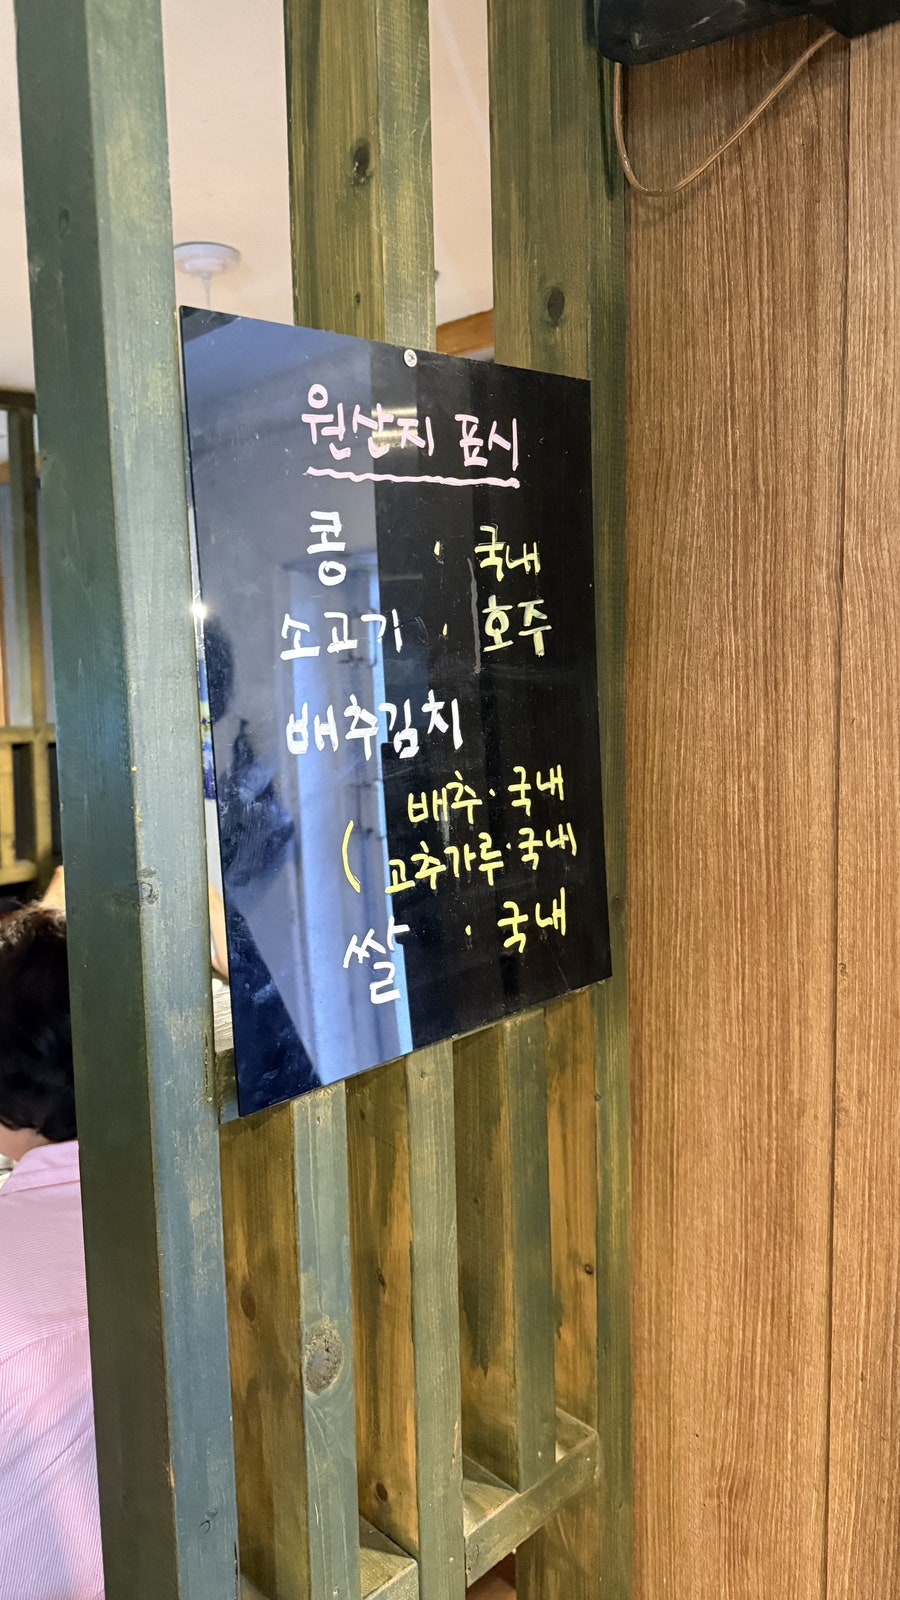 원산지 표시
콩 · 국내
소고기 · 호주
배추김치
배추·국내
( 고추가루·국내)
쌀 · 국내